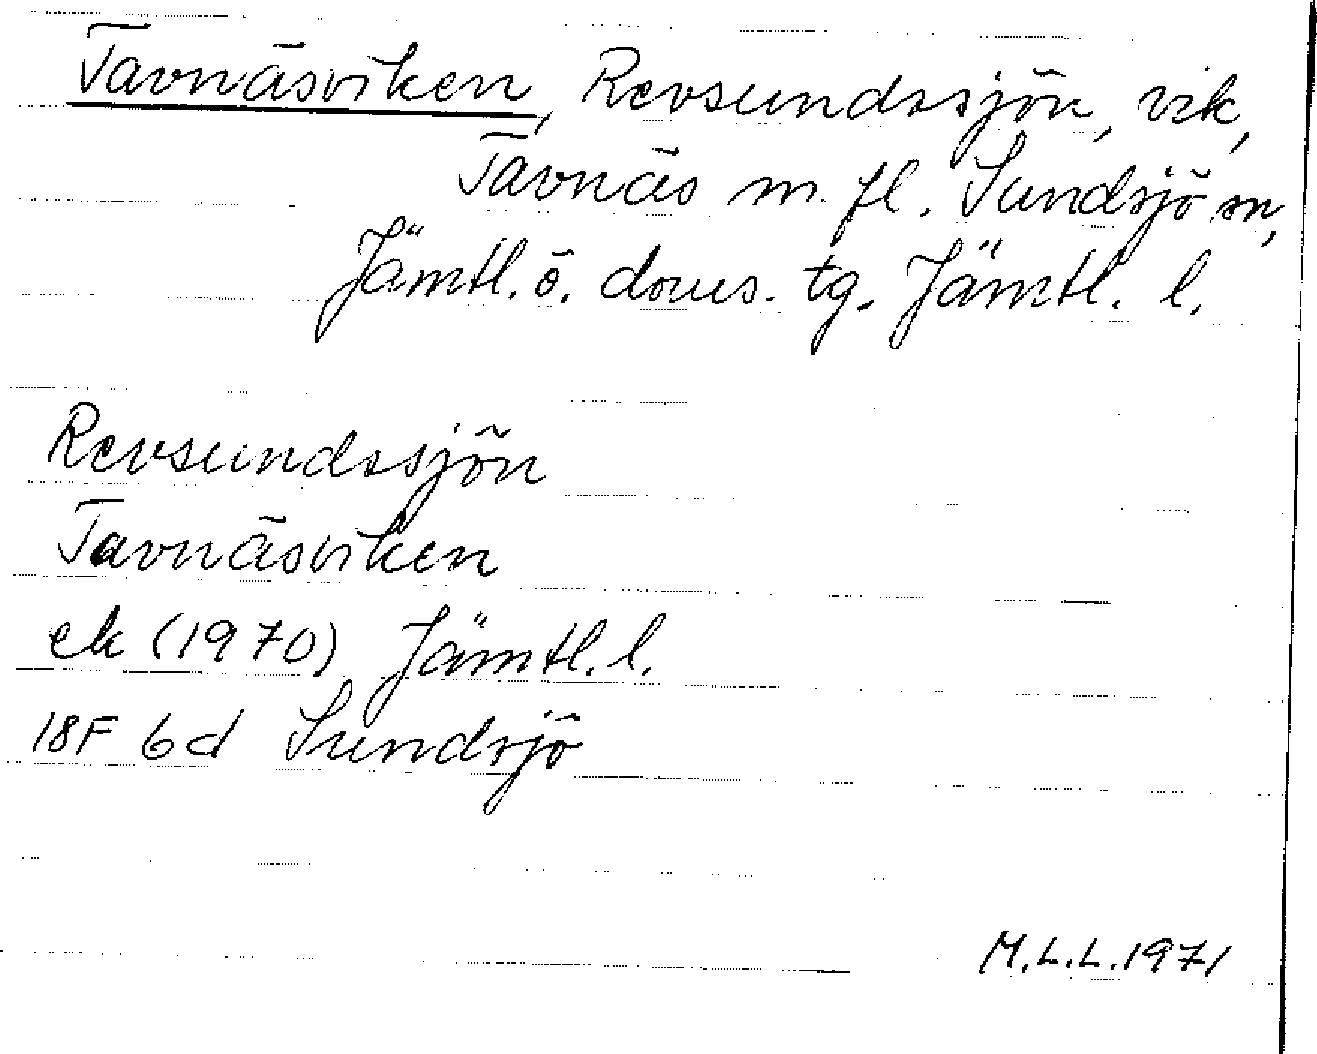 Tavnäsviken, Revsundssjön, vik,
Tavnäs m. fl. Sundsjö sn,
Jämtl. ö. doms. tg. Jämtl. l.
Revsundssjön
Tavnäsviken
ek (1970) Jämtl. l.
18F 6d Sundsjö
M.L.L. 1971